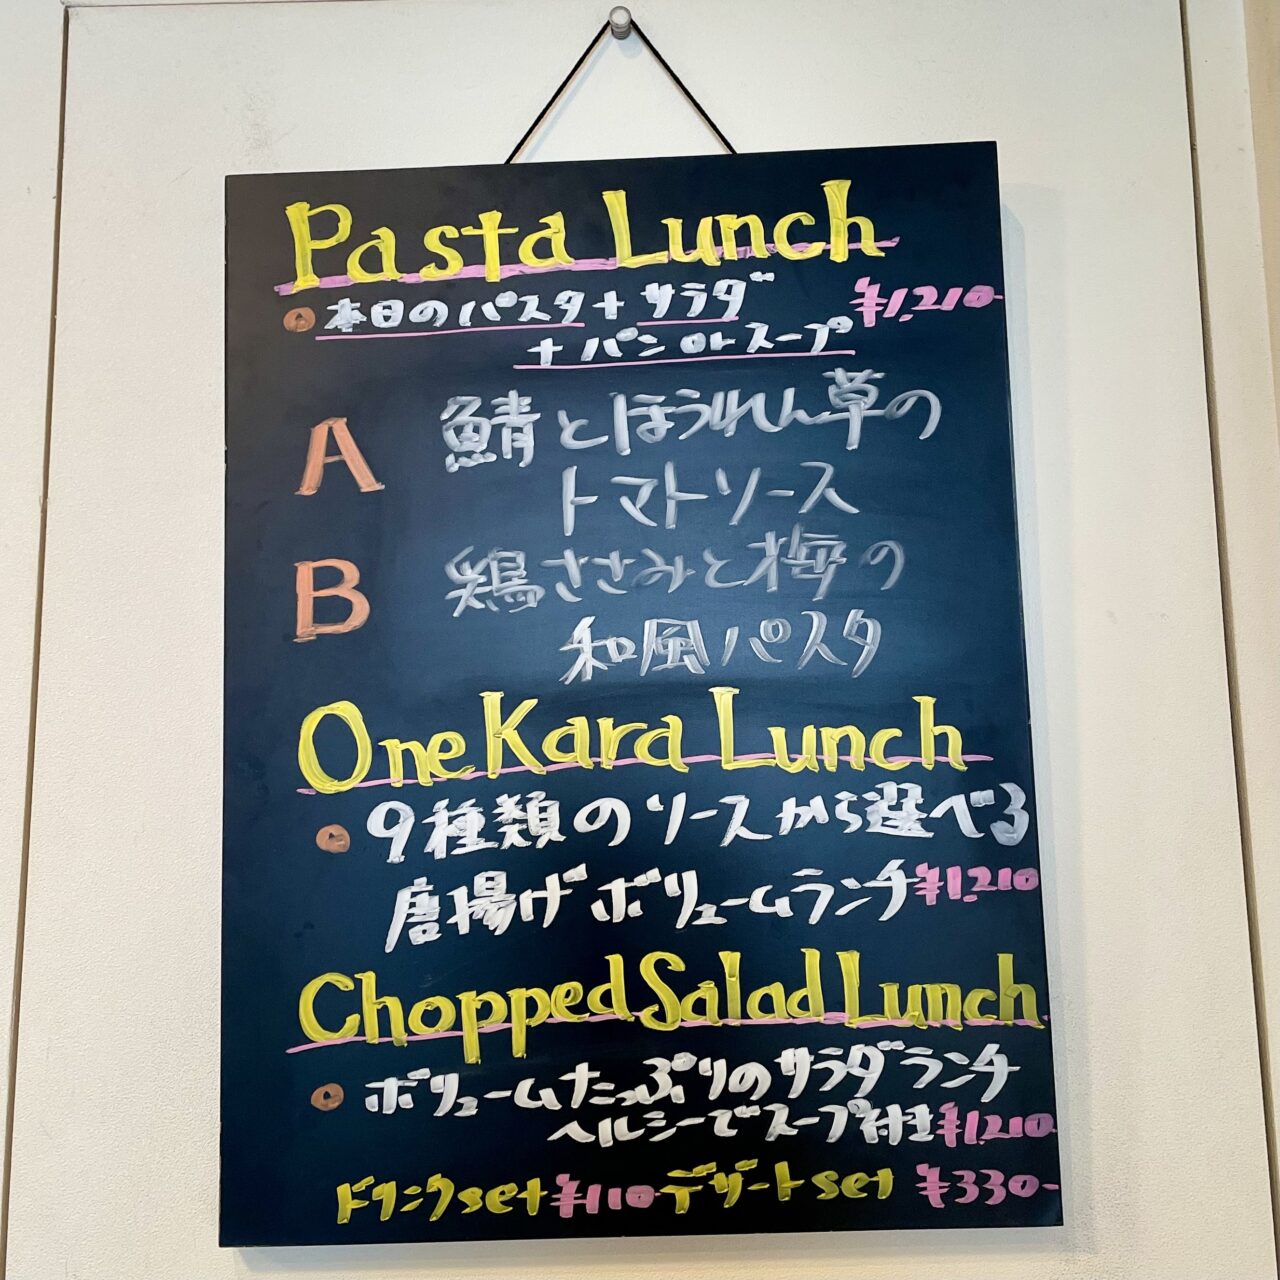 Pasta Lunch
本日のパスタ+サラダ ¥1,210-
+パン or スープ
A 鯖とほうれん草の
トマトソース
B 鶏ささみと梅の
和風パスタ
One Kara Lunch
9種類のソースから選べる
唐揚げボリュームランチ ¥1,210
Chopped Salad Lunch
ボリュームたっぷりのサラダランチ
ヘルシーでスープ付き ¥1,210-
ドリンクset ¥110- デザートset ¥330-